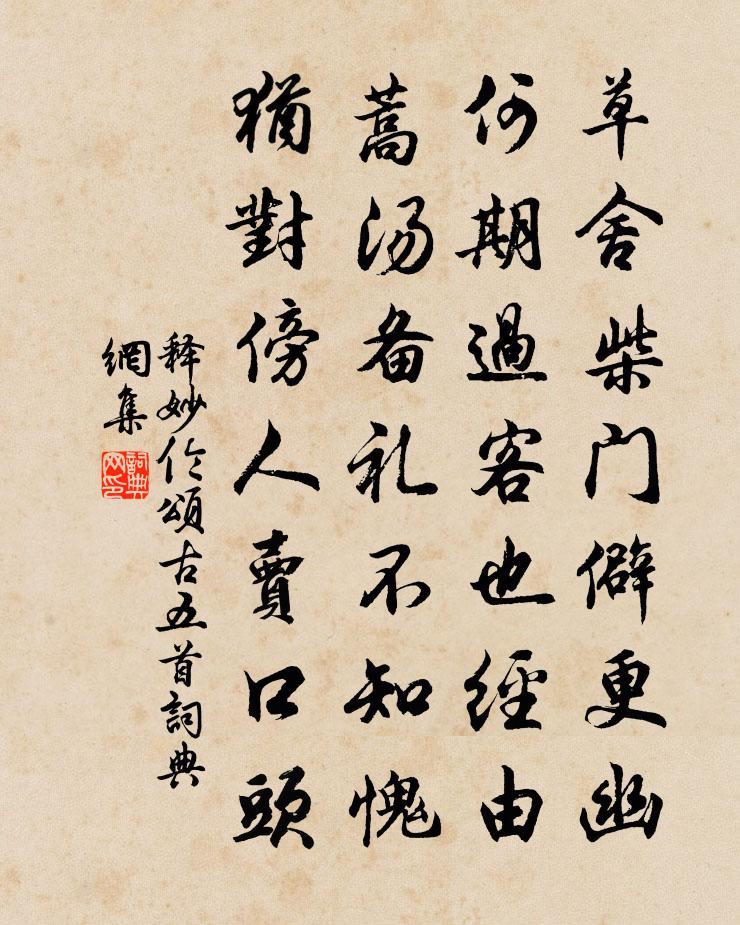 草舍柴门僻更幽
何期過客也經由
蒿湯备礼不知愧
猶對傍人賣口頭
释妙伦頌古五首詞典
網集
詞典網印